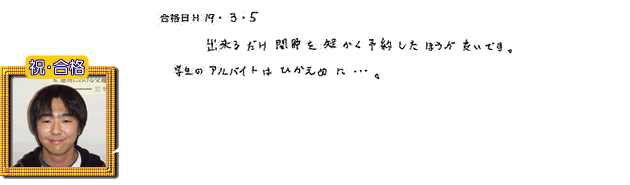 合格日H19・3・5
出来るだけ間節を短かく予約したほうが良いです。
学生のアルバイトはひかえめに…。
祝・合格